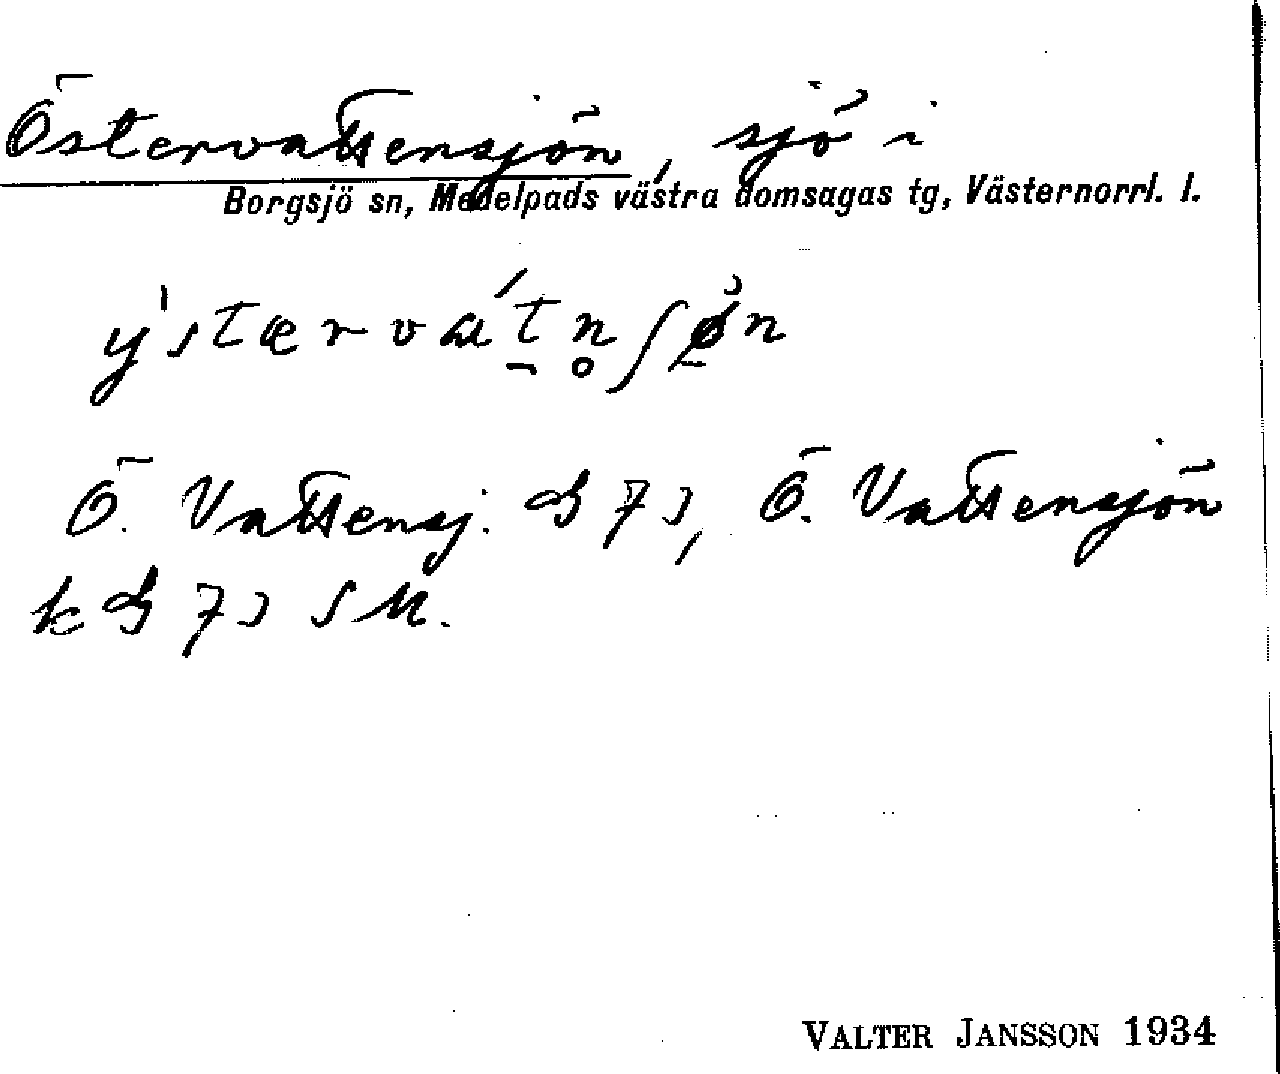 Östervattensjön, sjö i
Borgsjö sn, Medelpads västra domsagas tg, Västernorrl. l.
Ö. Vattensj. 73, Ö. Vattensjön
k 73 SM.
VALTER JANSSON 1934